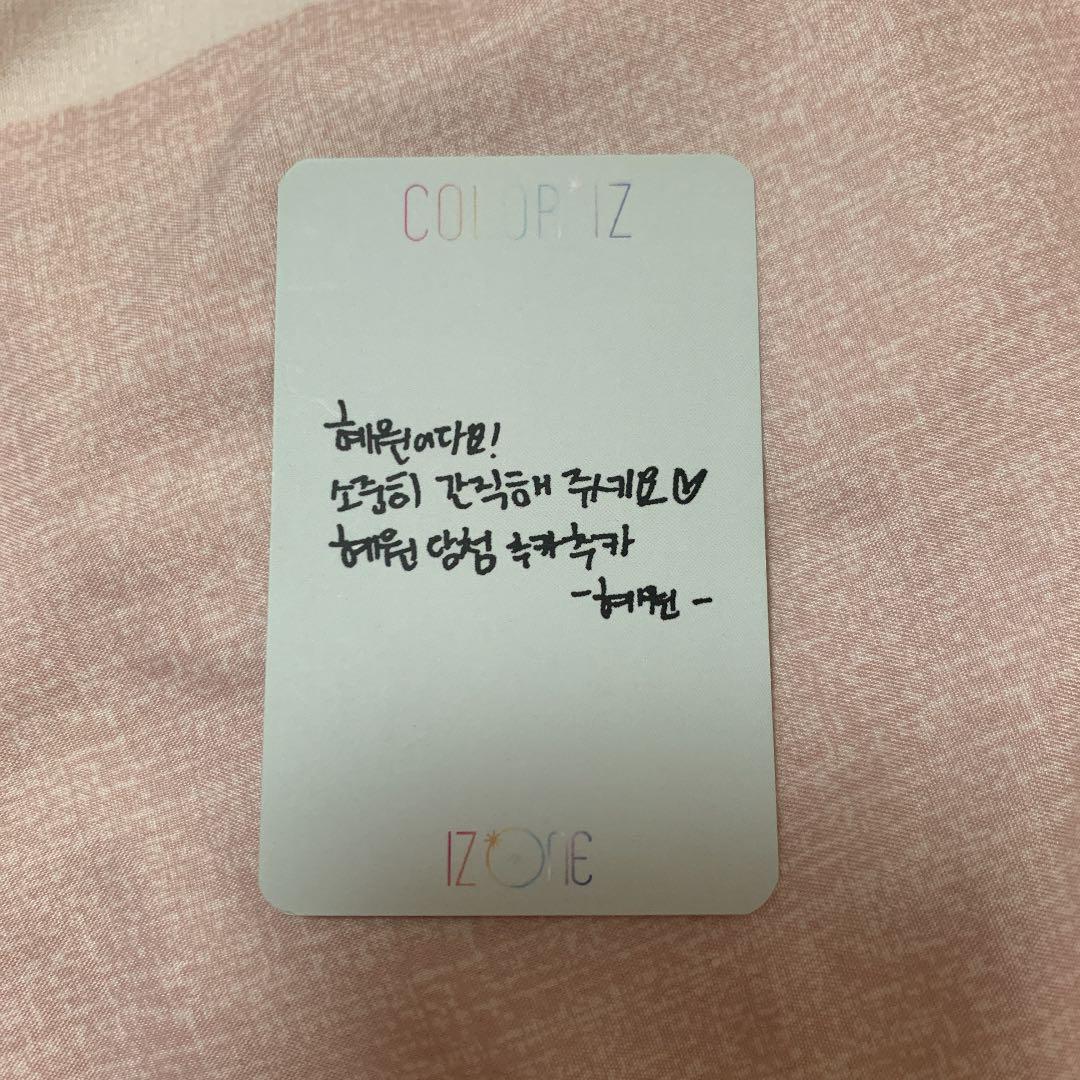 COLOR*IZ
혜원이다요!
소중히 간직해 주세요♡
혜원 당첨 추카추카
-혜원-
IZ*ONE